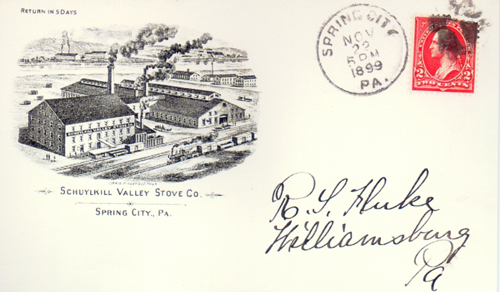 RETURN IN 5 DAYS
SCHUYLKILL VALLEY STOVE CO.
SPRING CITY., PA.
SPRING CITY
NOV
22
5 PM
1899
PA.
2 2
TWO CENTS
R. S. Fluke
Williamsburg
Pa